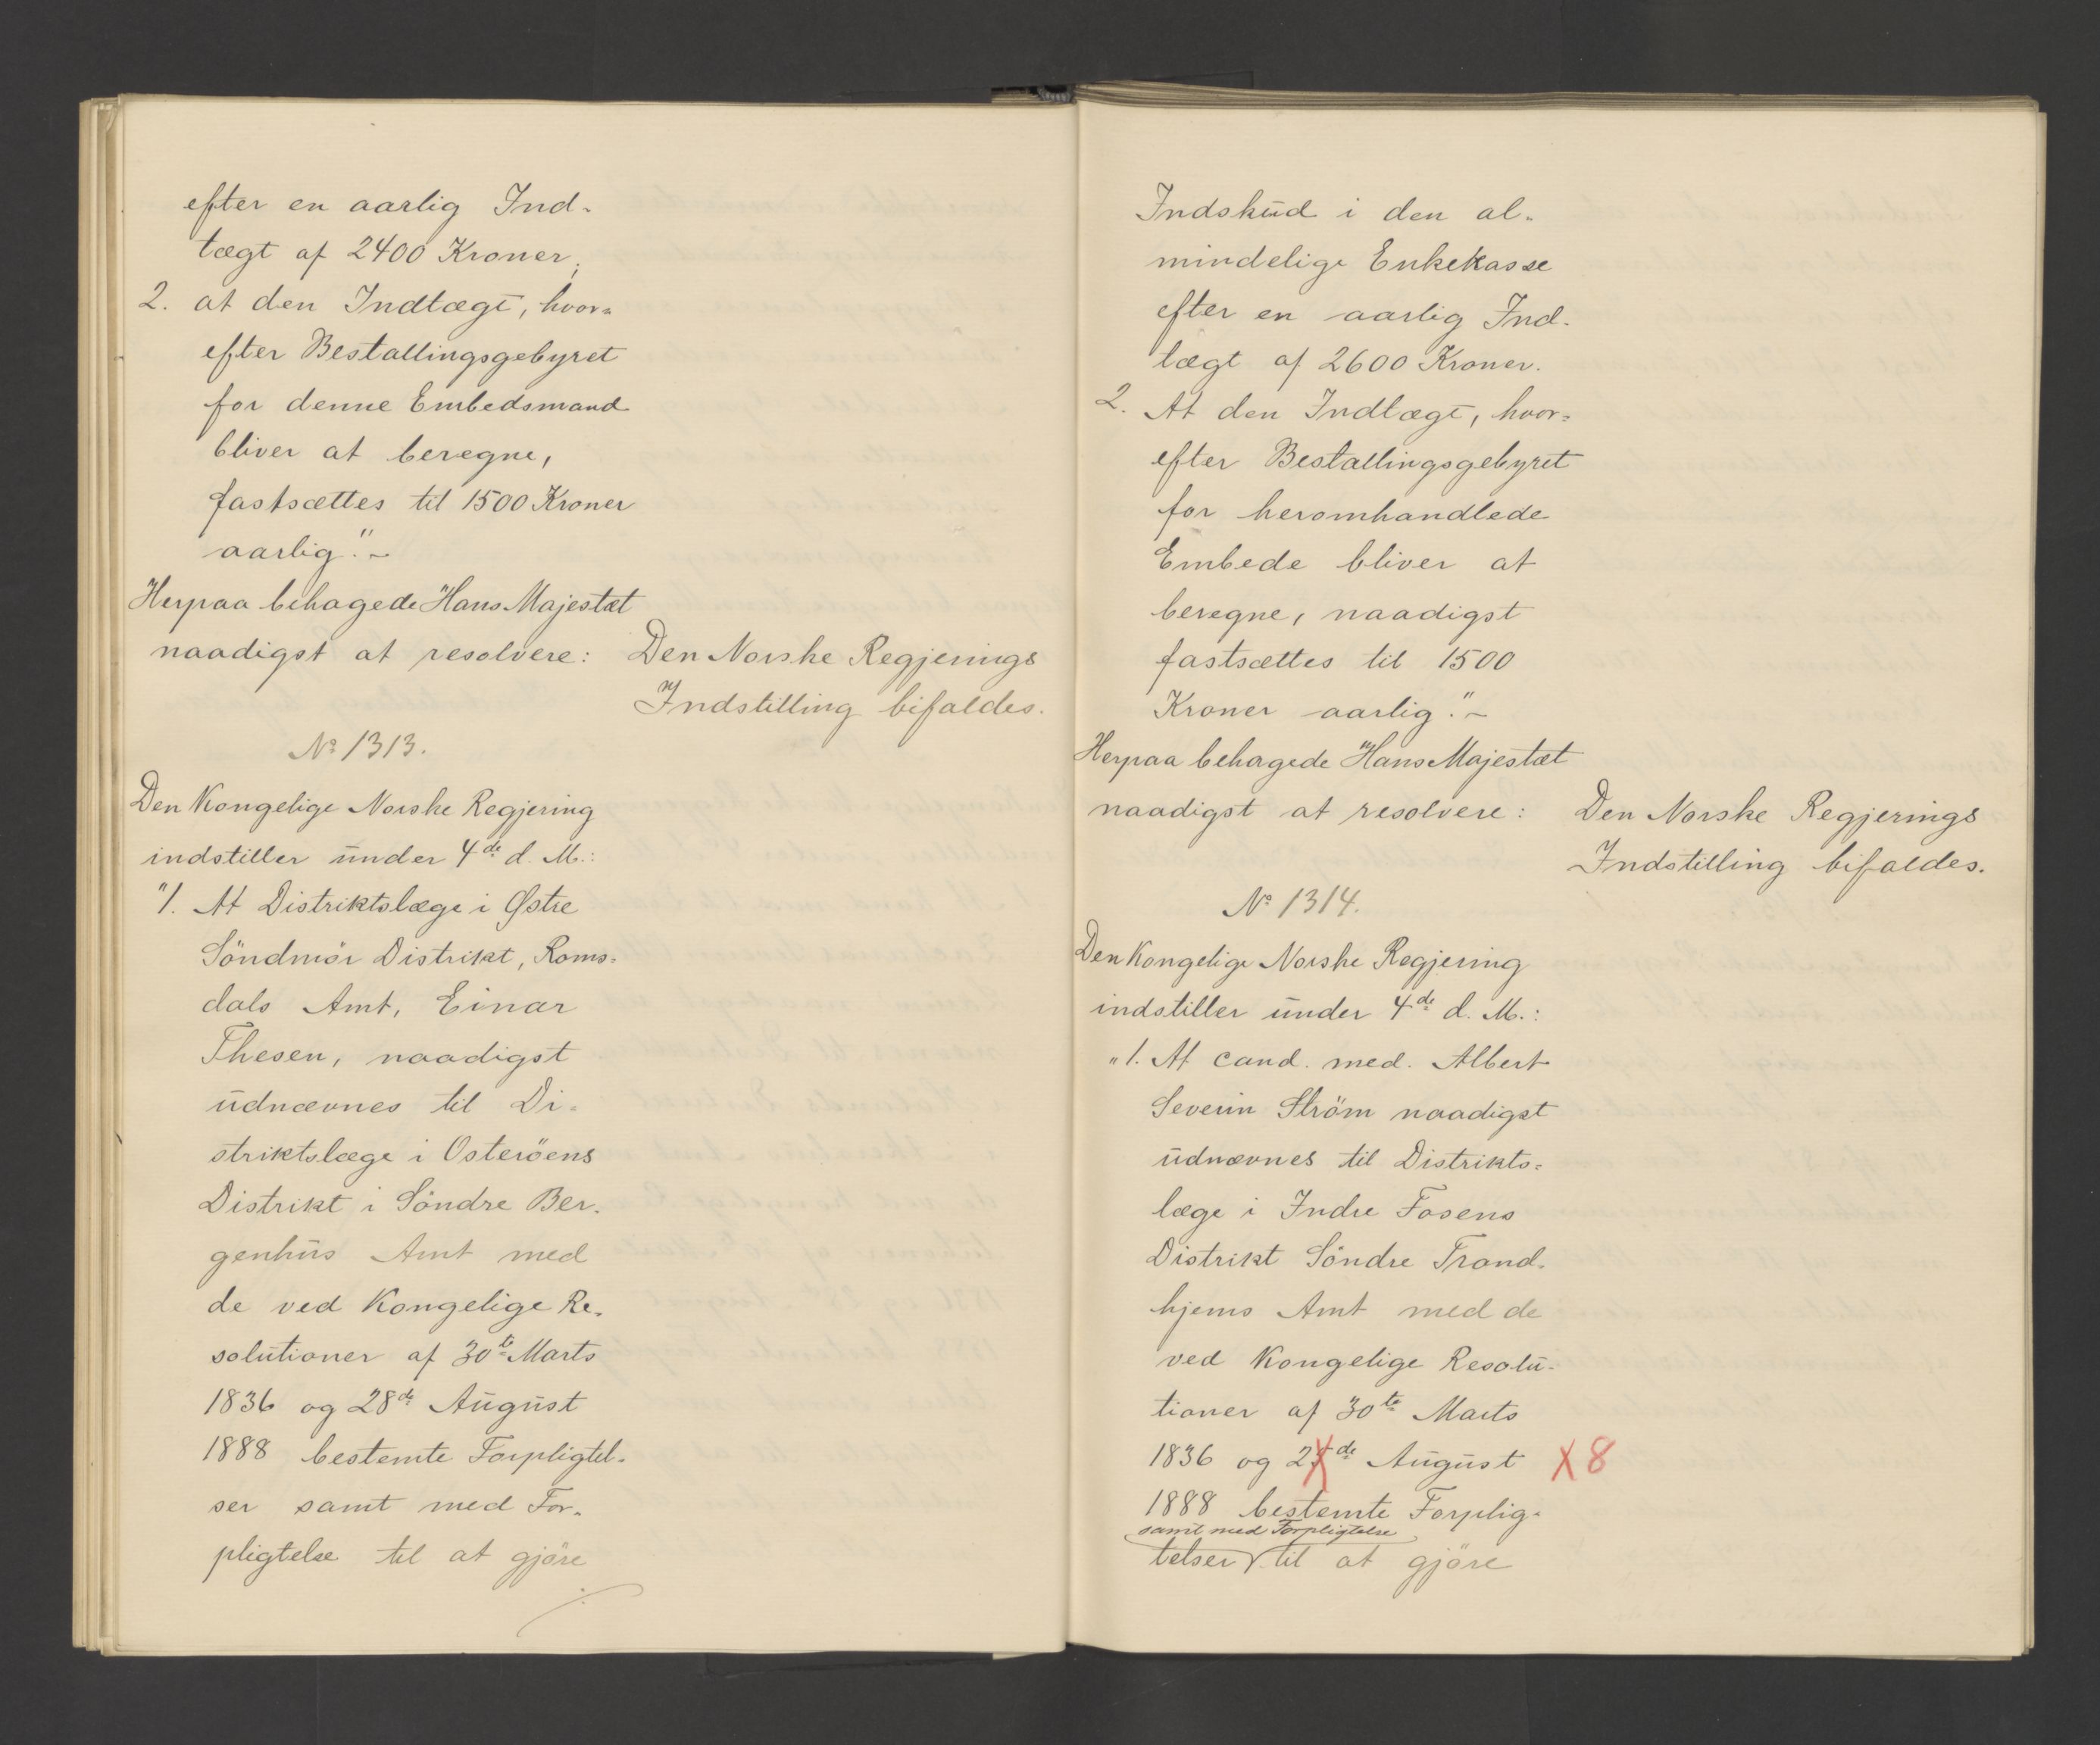 efter en aarlig Ind-
tægt af 2400 Kroner;
2. at den Indtægt, hvor-
efter Bestallingsgebyret
for denne Embedsmand
bliver at beregne,
fastsættes til 1500 Kroner
aarlig."-
Herpaa behagede Hans Majestæt
naadigst at resolvere: Den Norske Regjerings
Indstilling bifaldes.
No 1313.
Den Kongelige Norske Regjering
indstiller under 4de d. M.:
"1. At Distriktslæge i Østre
Söndmör Distrikt, Roms-
dals Amt, Einar
Thesen, naadigst
udnævnes til Di-
striktslæge i Osteröens
Distrikt i Söndre Ber-
genhus Amt med
de ved Kongelige Re-
solutioner af 30te Marts
1836 og 28de August
1888 bestemte Forpligtel-
ser samt med For-
pligtelse til at gjöre
./.
Indskud i den al-
mindelige Enkekasse
efter en aarlig Ind-
tægt af 2600 Kroner.
2. At den Indtægt, hvor-
efter Bestallingsgebyret
for heromhandlede
Embede bliver at
beregne, naadigst
fastsættes til 1500
Kroner aarlig."-
Herpaa behagede Hans Majestæt
naadigst at resolvere: Den Norske Regjerings
Indstilling bifaldes.
No 1314.
Den Kongelige Norske Regjering
indstiller under 4de d. M.:
"1. At cand. med. Albert
Severin Ström naadigst
udnævnes til Distrikts-
læge i Indre Fosens
Distrikt Söndre Trond-
hjems Amt med de
ved Kongelige Resolu-
tioner af 30te Marts
1836 og 25de August X 8
1888 bestemte Forplig-
samt med Forpligtelse
telser til at gjöre